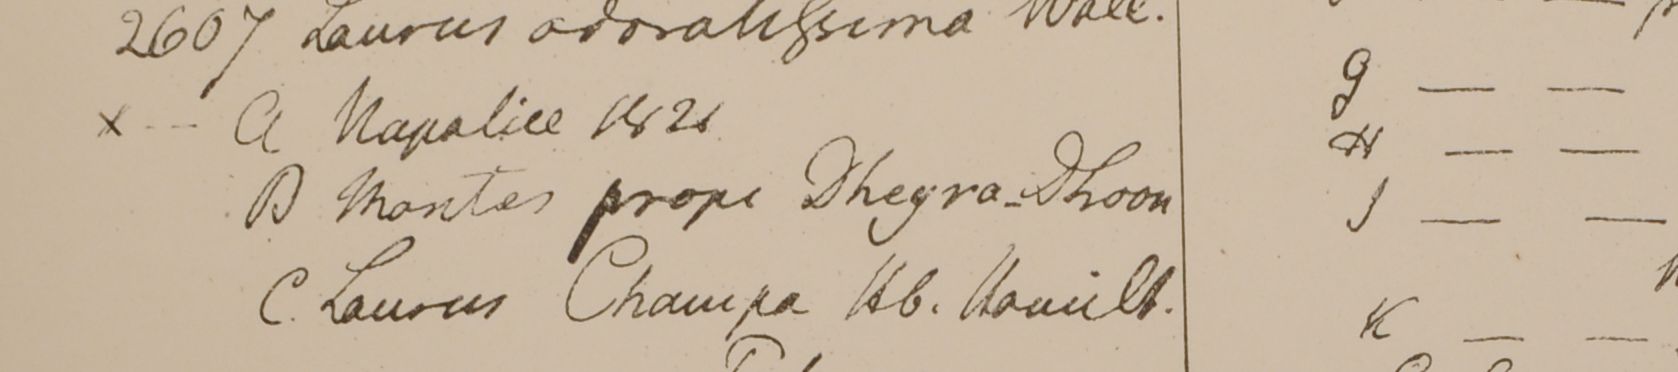 2607 Laurus odoratissima Wall.
x -- A Napaliae 1821
B Montes prope Dhegra-Dhoon
C. Laurus Champa Hb. Hamilt.
G — —
H — —
J — —
K — —